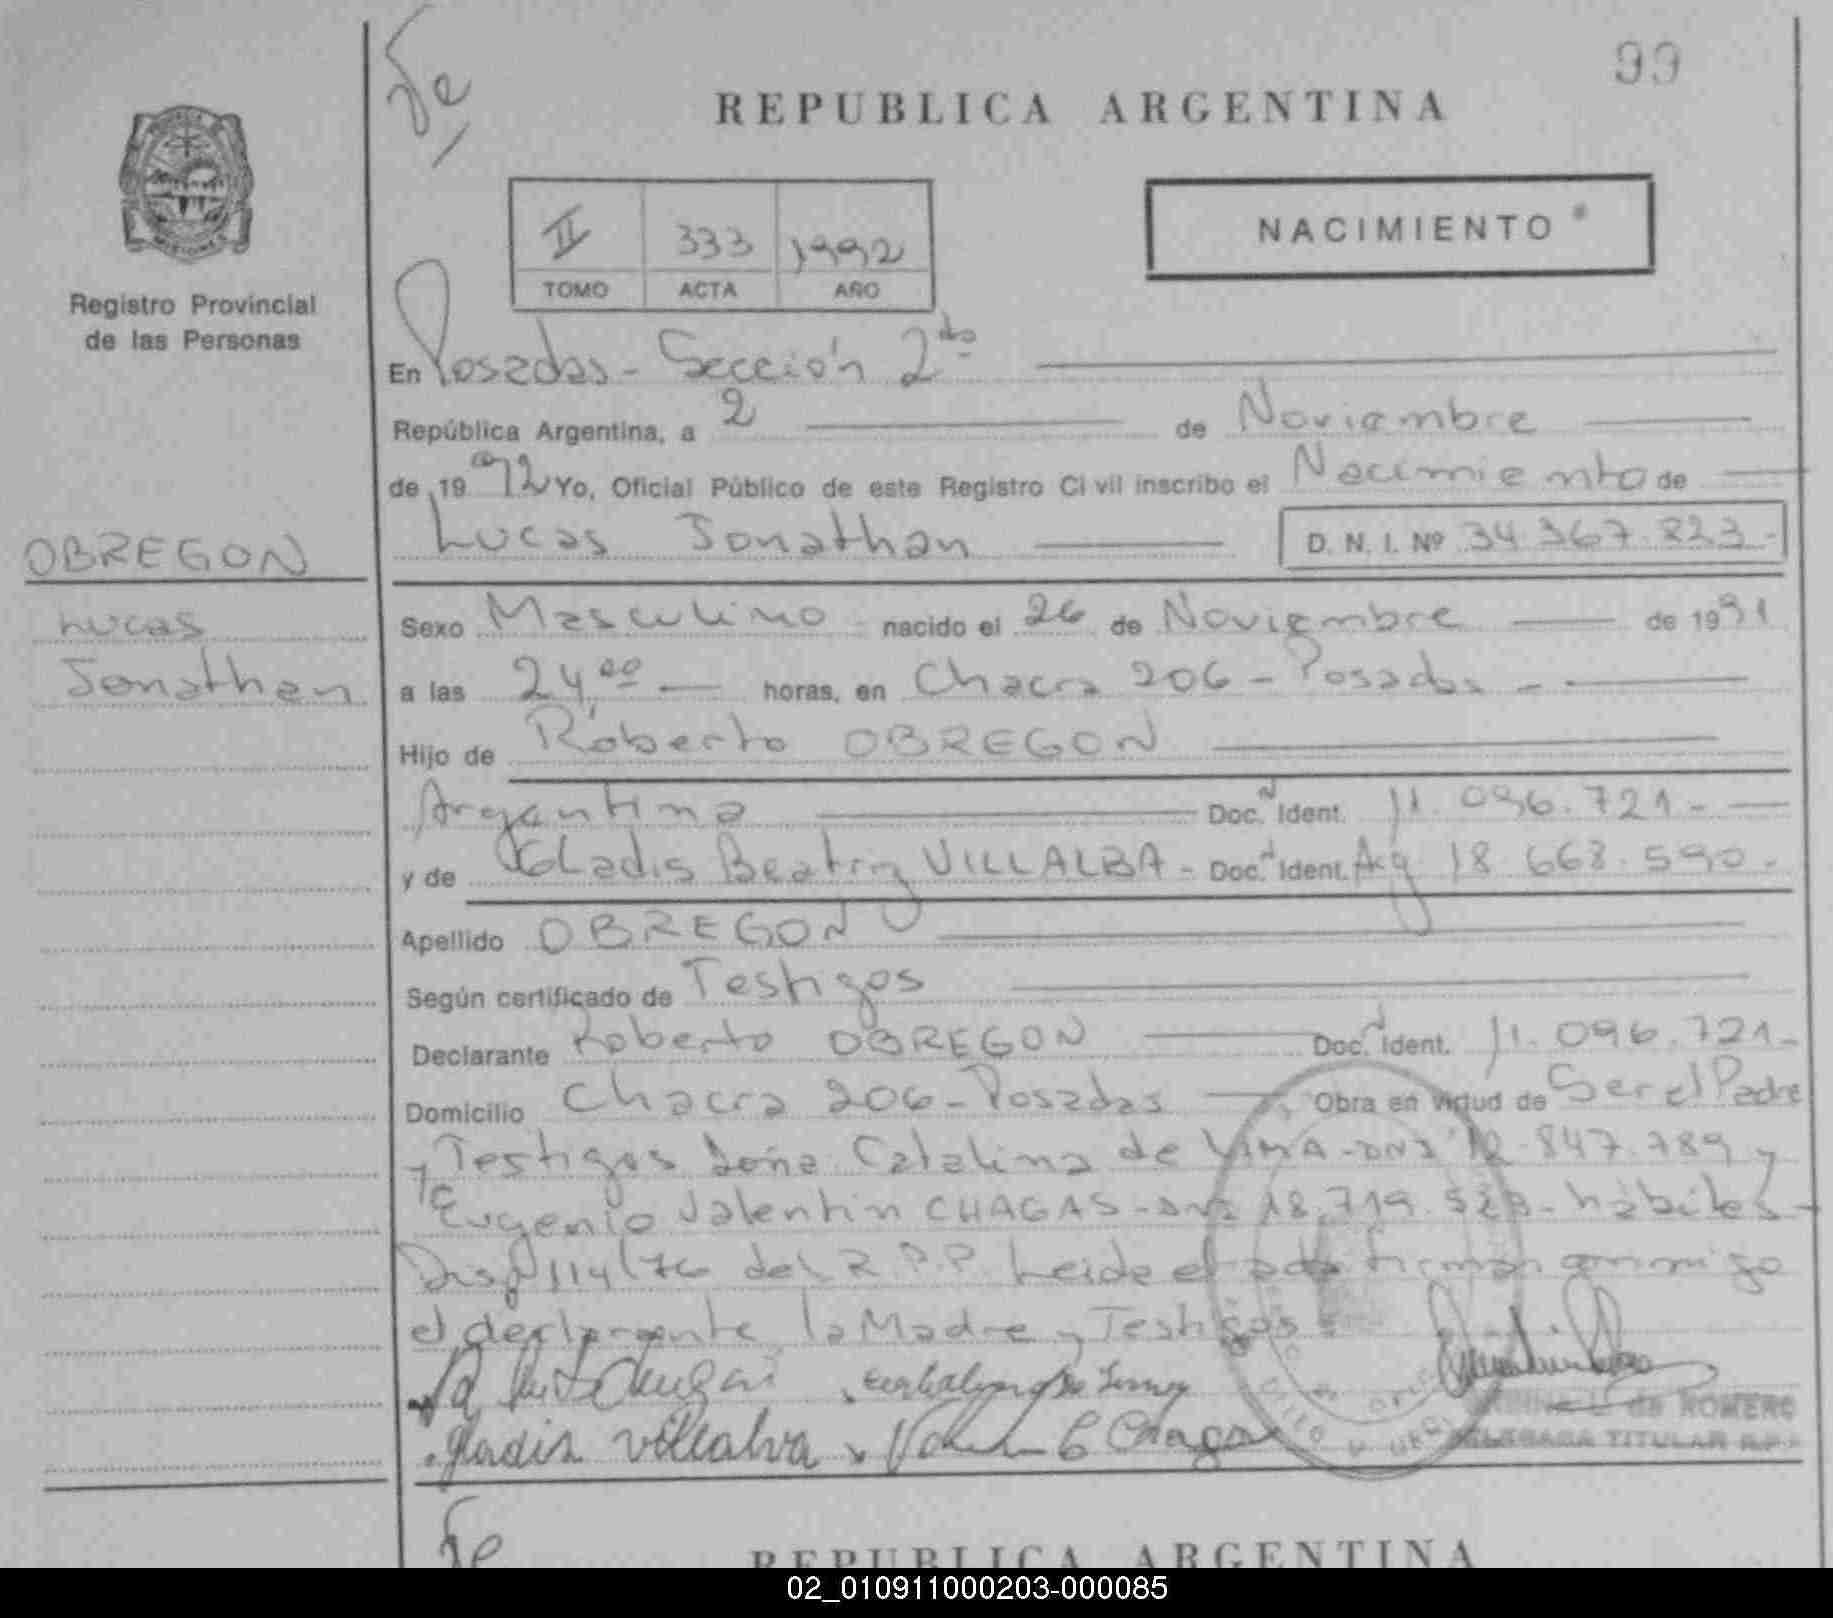 Je
99
REPUBLICA ARGENTINA
II 333 1992
TOMO ACTA AÑO
NACIMIENTO
Registro Provincial
de las Personas
En Posadas - Sección 2da
República Argentina, a 2 de Noviembre
de 19 92 Yo, Oficial Público de este Registro Civil inscribo el Nacimiento de
Lucas Jonathan D. N. I. Nº 34.367.823-
OBREGON
Lucas
Jonathan
Sexo Masculino nacido el 26 de Noviembre de 1991
a las 24,00 horas, en Chacra 206 - Posadas -
Hijo de Roberto OBREGON
Argentina Doc. Ident. 11.096.721-
y de Gladis Beatriz VILLALBA - Doc. Ident. Arg 18.668.590-
Apellido OBREGON
Según certificado de Testigos
Declarante Roberto OBREGON Doc. Ident. 11.096.721-
Domicilio Chacra 206 - Posadas Obra en virtud de Ser el Padre
y Testigos doña Catalina de LIMA - DNI 12.847.789 y
Eugenio Valentin CHAGAS - DNI 18.719.523 - hábiles -
Disp. 114/76 del R.P.P. Leida el acta firman conmigo
el declarante la Madre y Testigos
gladis villalva
de ROMERO
DELEGADA TITULAR R.P.P.
Je
REPUBLICA ARGENTINA
02_010911000203-000085